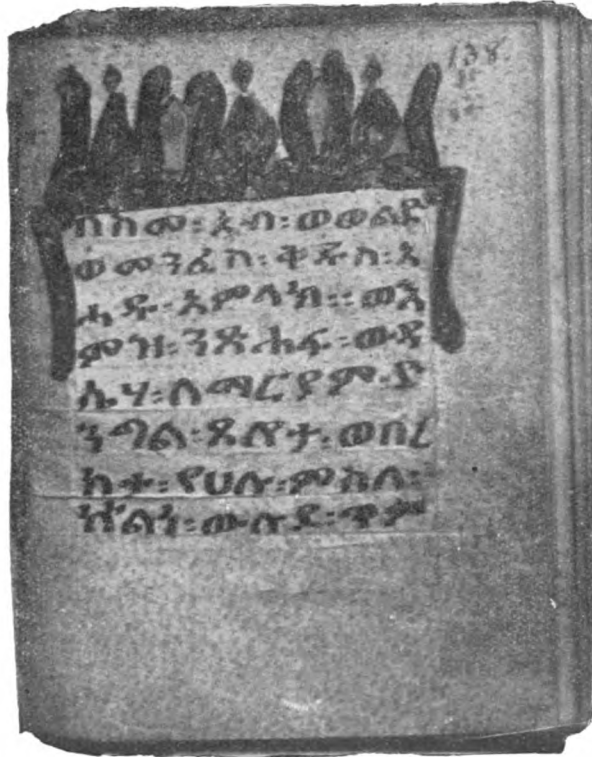 138
በስመ፡አብ፡ወወልድ
ወመንፈስ፡ቅዱስ፡አ
ሐዱ፡አምላክ፡፡ወእ
ምዝ፡ንጽሕፍ፡ውዳ
ሴሃ፡ለማርያም፡ድ
ንግል፡ጸሎታ፡ወበረ
ከታ፡የሀሉ፡ምስለ፡
ኵልነ፡ውሉደ፡ጥም